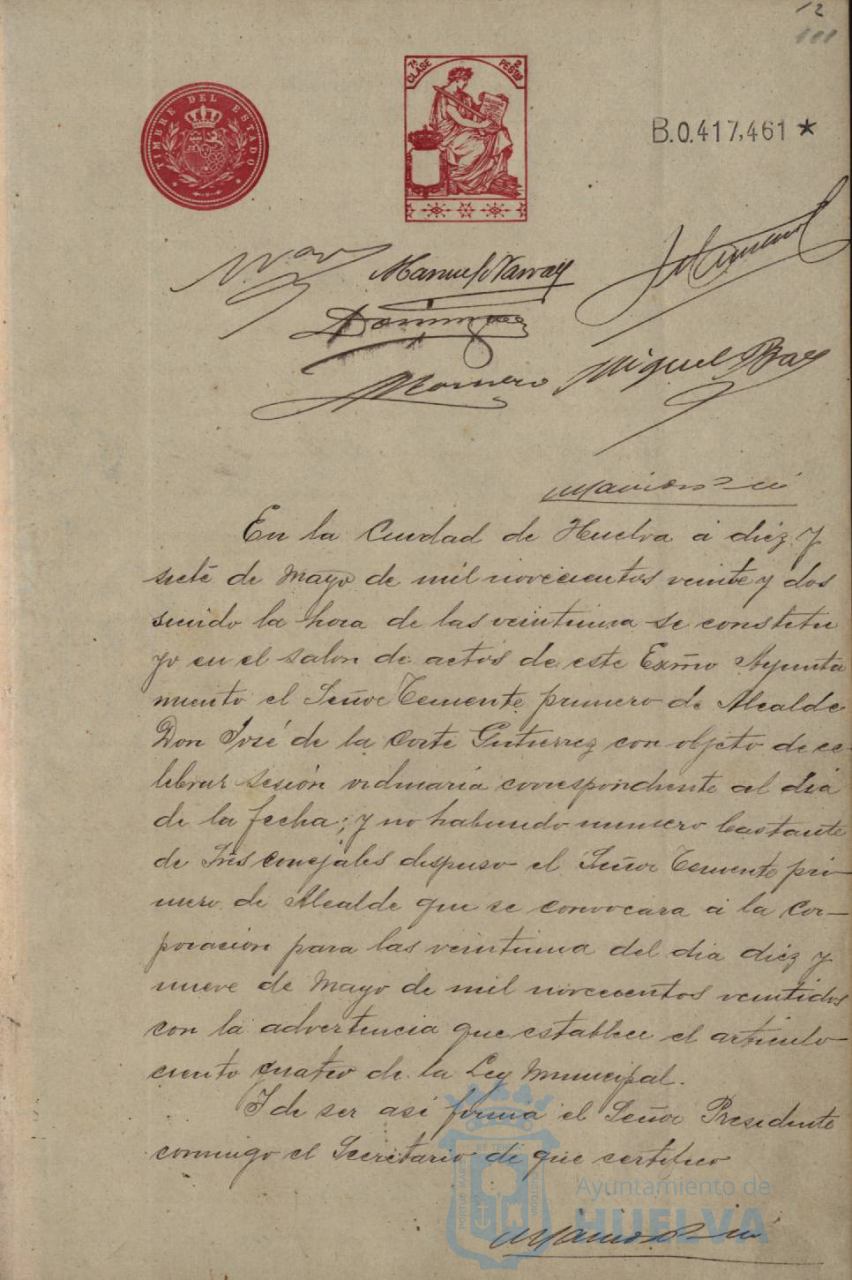 12
111
TIMBRE DEL ESTADO
7ª CLASE
2 PESTAS
B.0.417,461 *
Manuel Narvaez
Dominguez
Romero Miguel Baez
En la Ciudad de Huelva á diez y
siete de Mayo de mil novecientos veinte y dos
siendo la hora de las veintiuna se constitu
yo en el salon de actos de este Exmo Ayunta
miento el Señor Teniente primero de Alcalde
Don José de la Corte Gutierrez con objeto de ce-
lebrar sesión ordinaria correspondiente al dia
de la fecha; y no habiendo numero bastante
de Sres concejales dispuso el Señor Teniente pri-
mero de Alcalde que se convocara á la Cor-
poracion para las veintiuna del dia diez y
nueve de Mayo de mil novecientos veintidos
con la advertencia que establece el articulo
ciento cuatro de la Ley Municipal.
I de ser asi firma el Señor Presidente
conmigo el Secretario de que certifico
Ayuntamiento de
HUELVA